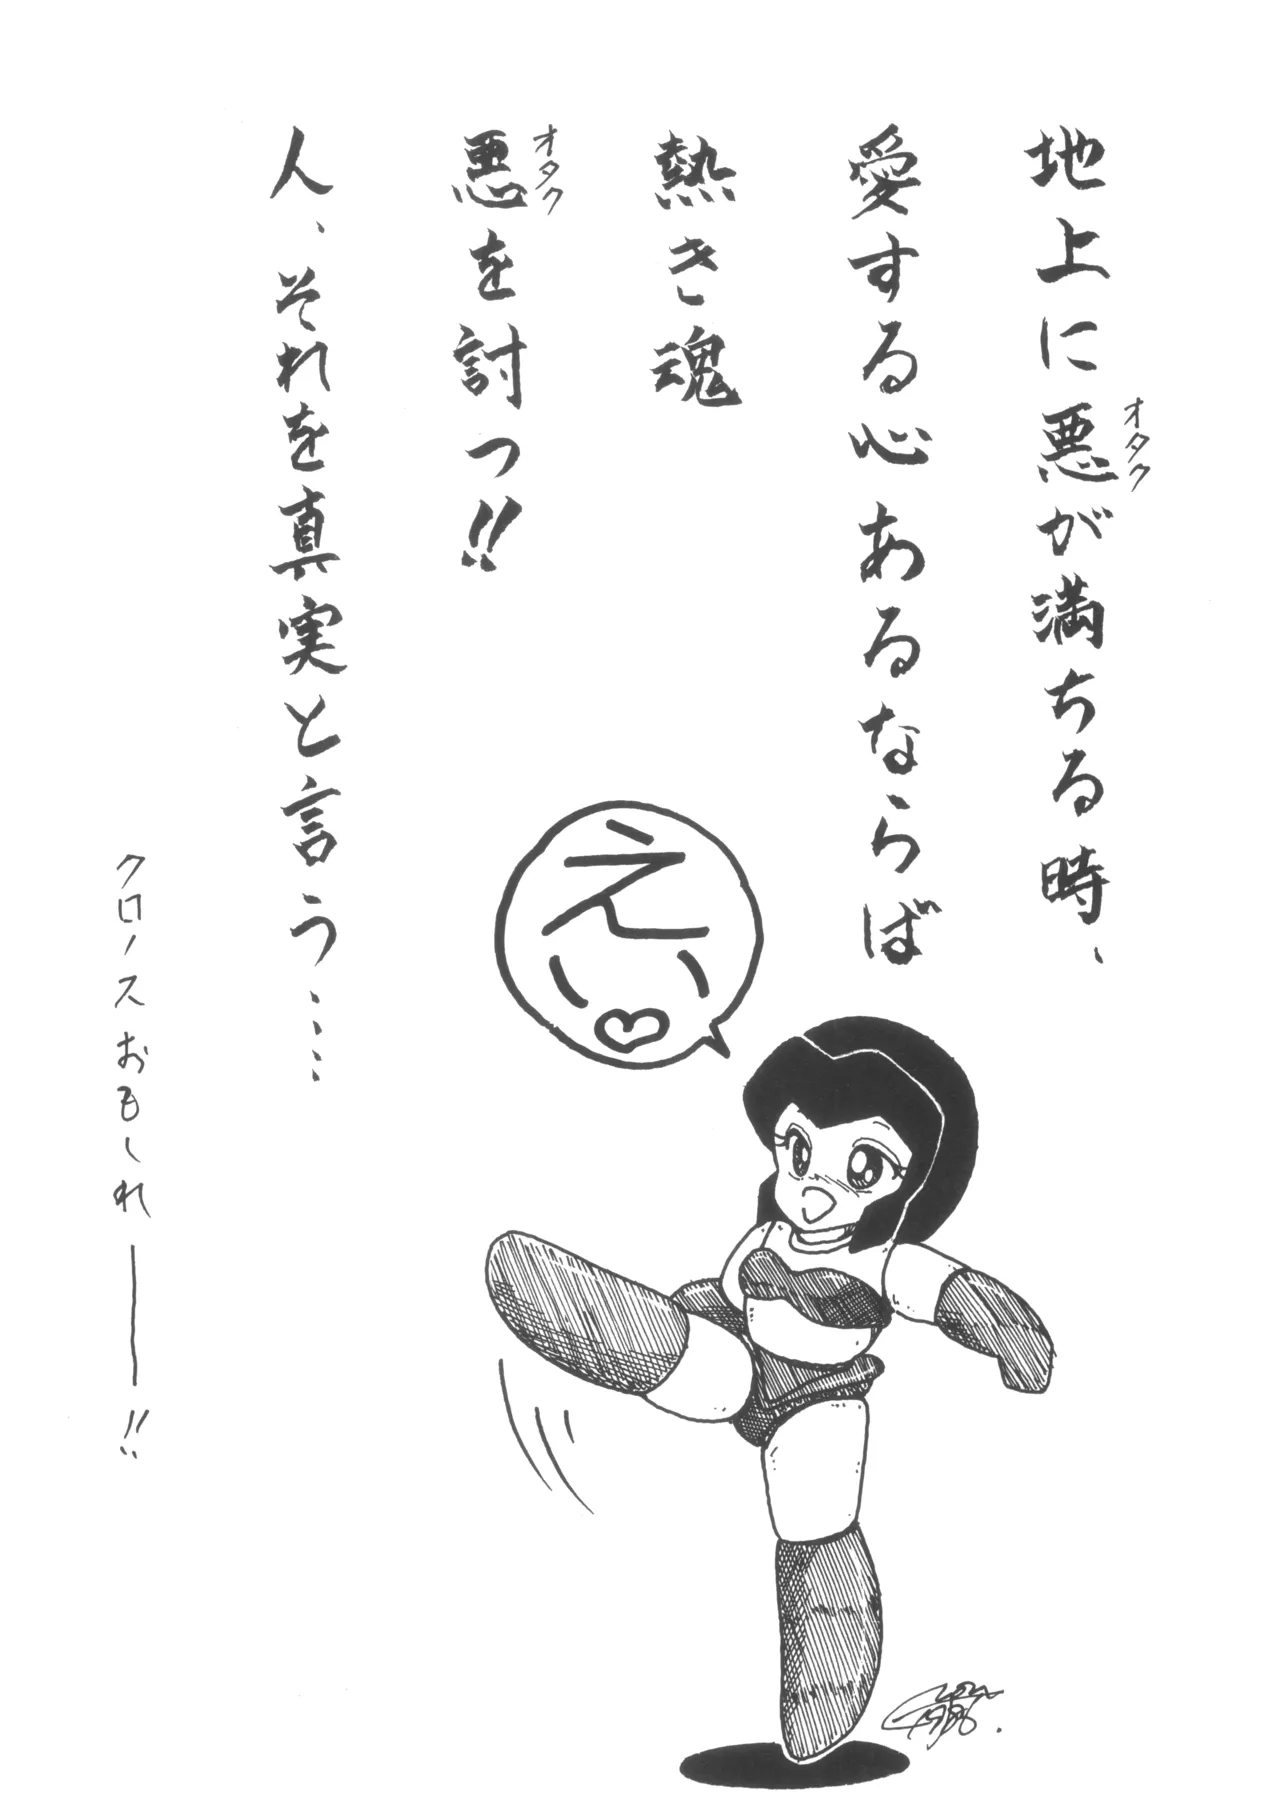 地上に悪が満ちる時、
オタク
愛する心あるならば
熱き魂
悪を討つ!!
オタク
人、それを真実と言う……
えい♡
クロノスおもしれ——!!